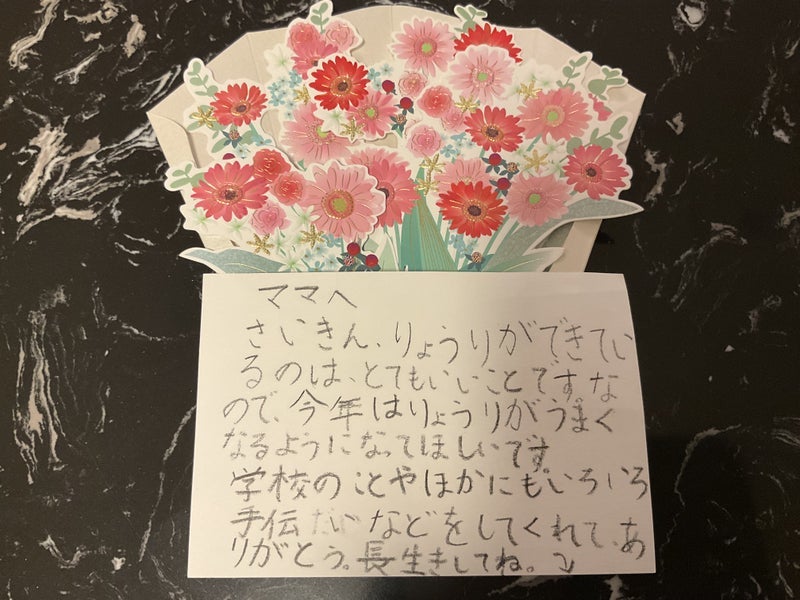 ママへ
さいきん、りょうりができてい
るのは、とてもいいことです。な
ので、今年はりょうりがうまく
なるようになってほしいです。
学校のことやほかにもいろいろ
手伝だいなどをしてくれて、あ
りがとう。長生きしてね。